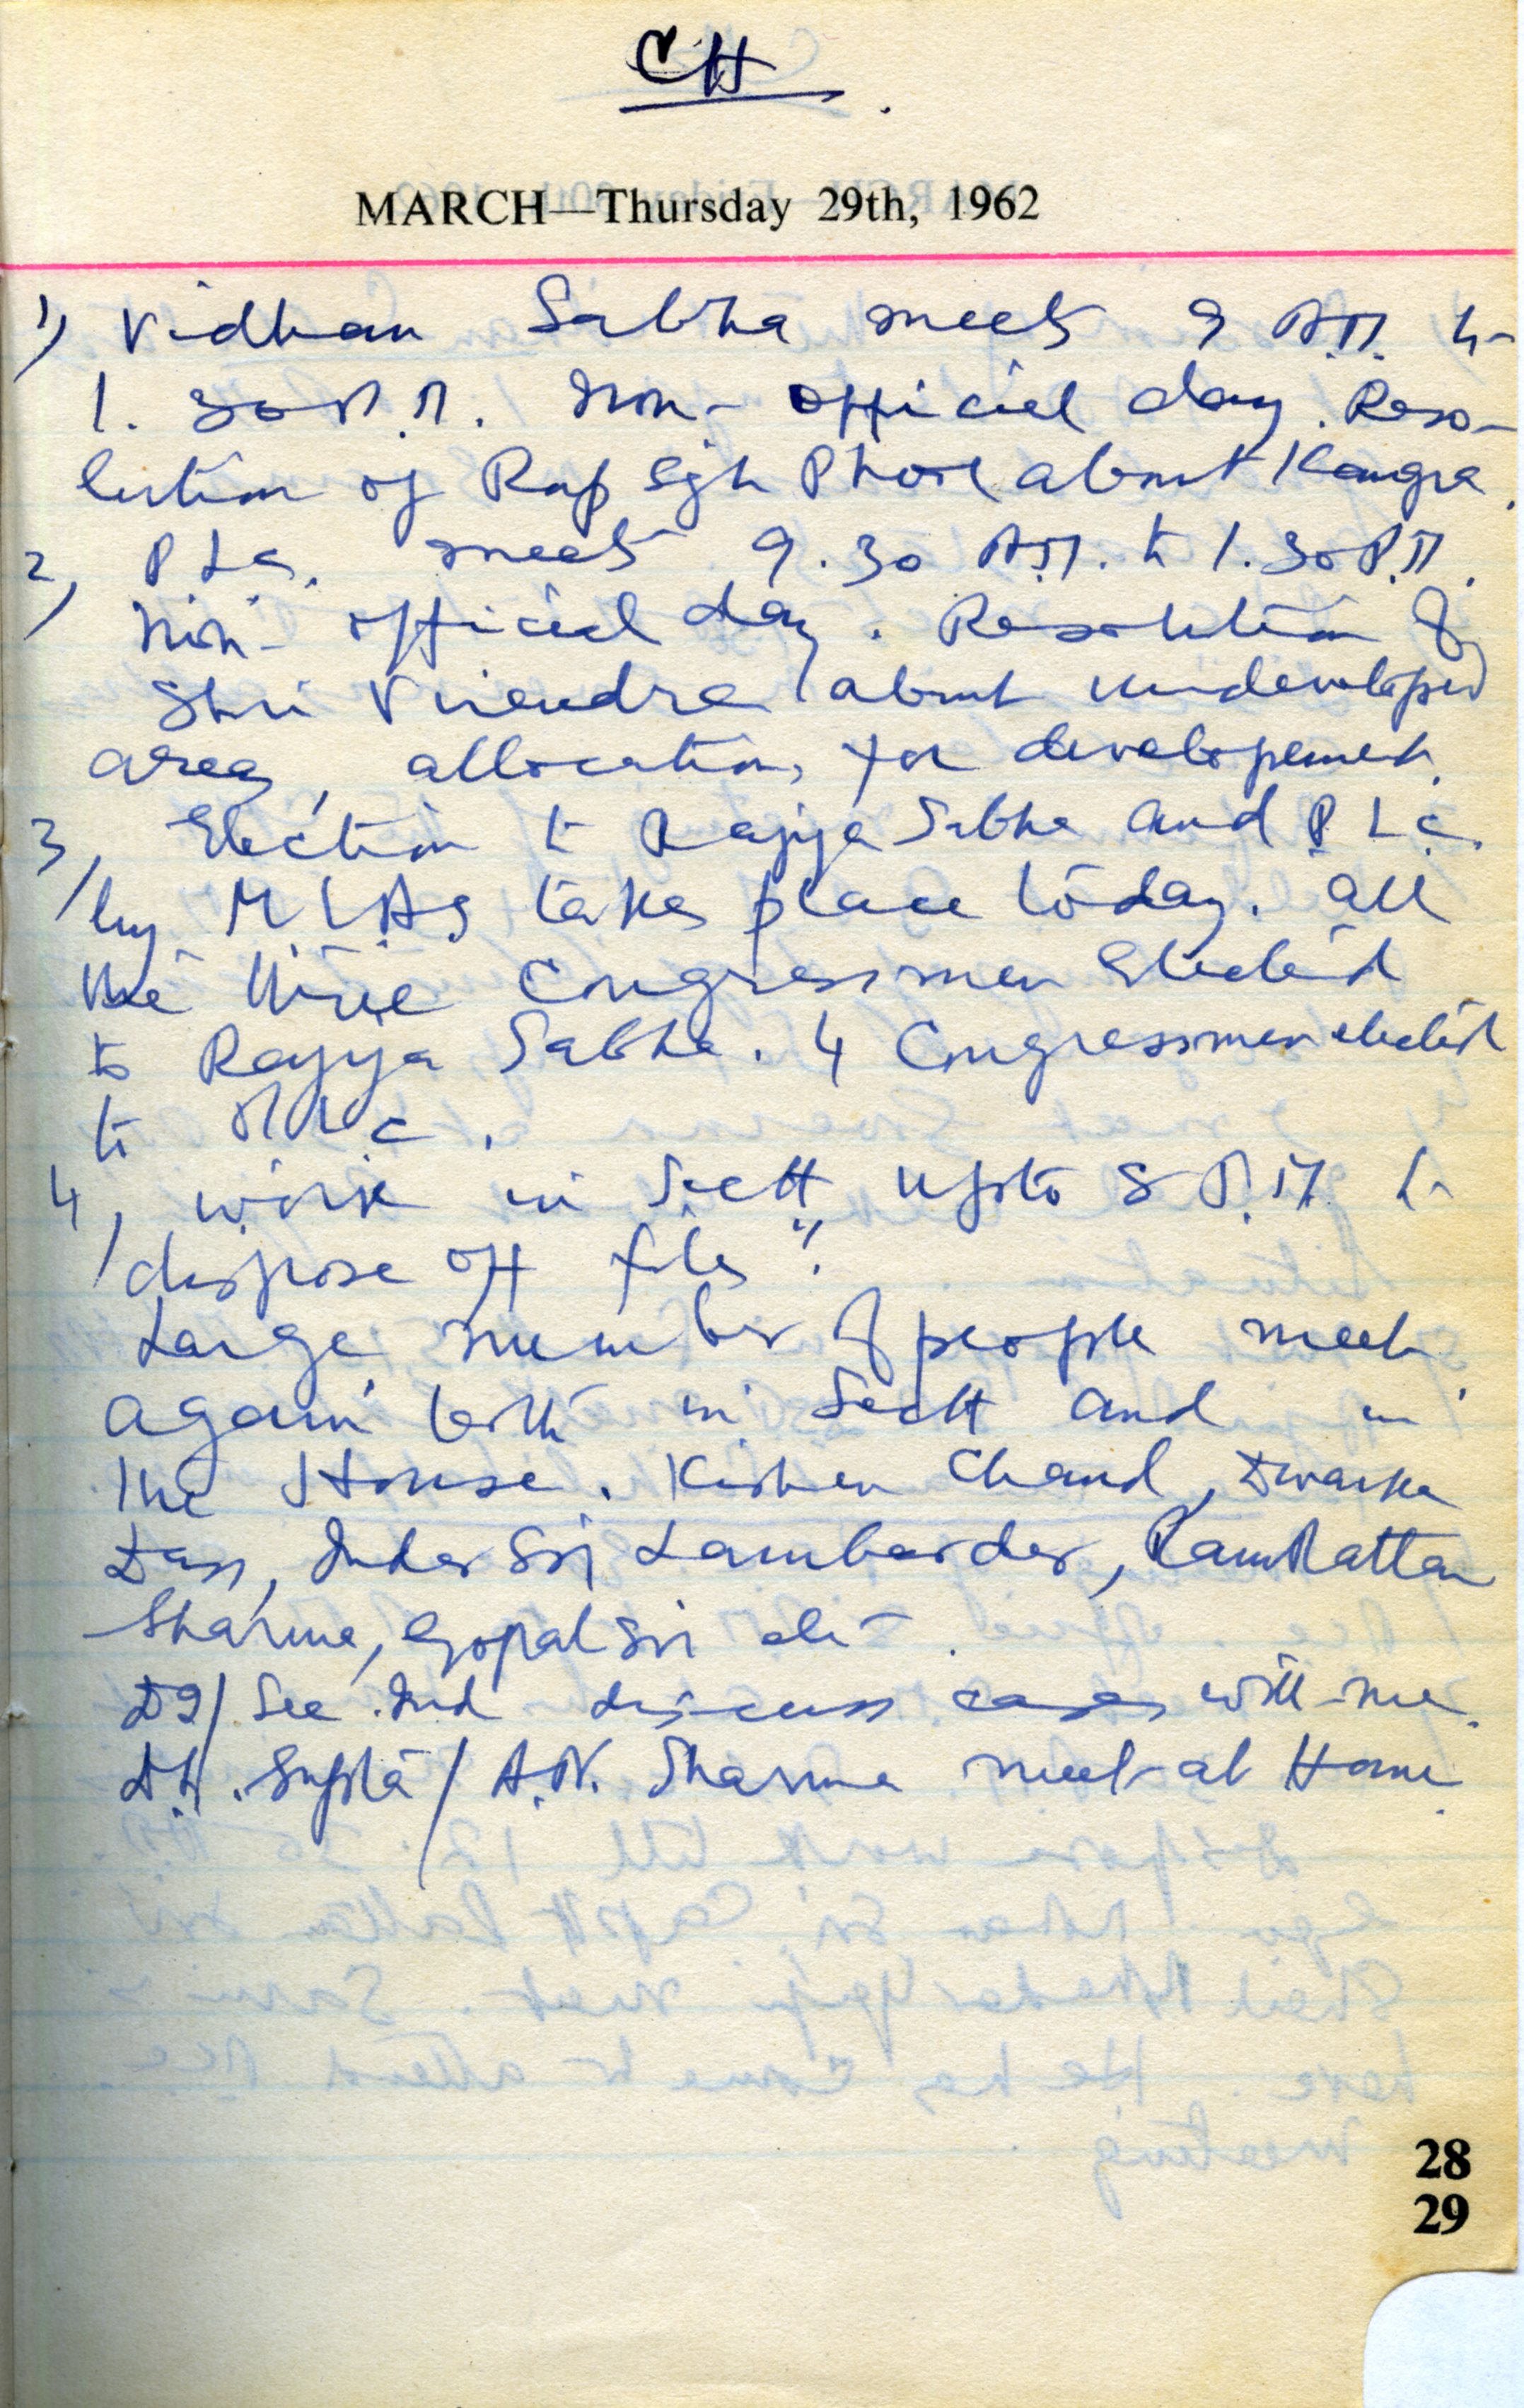 CH
MARCH—Thursday 29th, 1962
1) Vidhan Sabha meets 9 A.M. to
1.30 P.M. Non-official day. Reso-
lution of Rup Sgh Phool about Kangra.
2, P.L.C. meets 9.30 A.M. to 1.30 P.M.
Non-official day. Resolution of
Shri Virendra about undeveloped
area, allocation, for developement.
3, Election to Rajya Sabha and P.L.C.
by M.L.As takes place today. All
the three Congressmen elected
to Rajya Sabha. 4 Congressmen elected
to P.L.C.
4, work in Sectt upto 8 P.M. to
dispose off files.
Large number of people meet
again both in Sectt and in
the House. Kishen Chand, Dwarka
Dass, Inder Sgh Lambardar, Ram Rattan
Sharma, Gopal Sgh etc.
DI/Sec. Ind discuss cases with me.
Gupta/A.N. Sharma meet at Home.
28
29